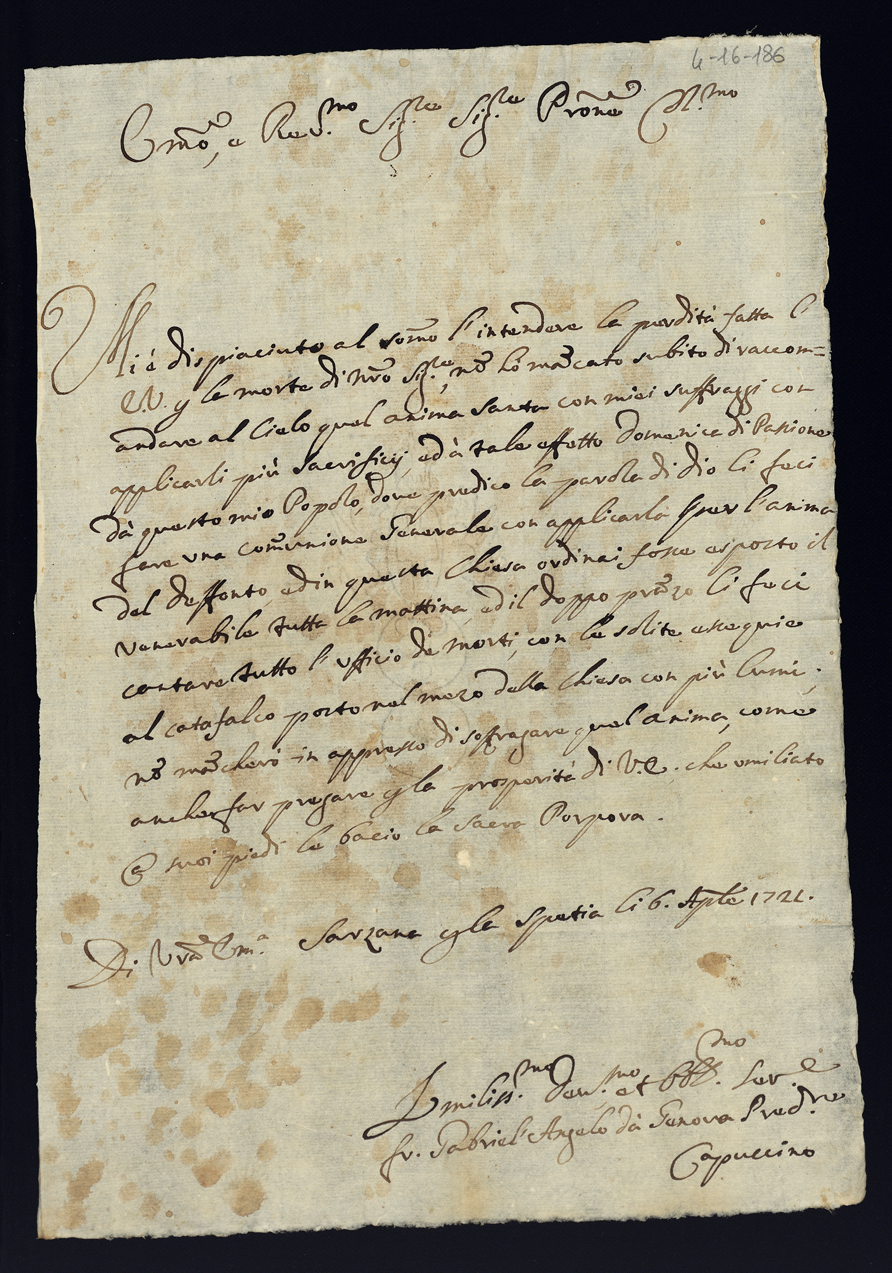 4-16-186
Emo, e Reu.mo Sig.re Sig.re Prone Col.mo
Mi è dispiaciuto al somo l'intendere la perdità fatta l'
E.V. p la morte di Nro Sig.re, nõ hò mãcato subito di raccom=
andare al Cielo quel anima santa con miei suffraggi con
applicarli più Sacrificij, ed à tale effetto Domenica di Passione
dà questo mio Popolo, dove predico la parola di Dio li feci
fare una comunione Generale con applicarla per l'anima
del deffonto, ed in questa Chiesa ordinai fosse esposto il
Venerabile tutta la mattina, ed il doppo prãzo li feci
cantare tutto l'ufficio de morti, con le solite essequie
al catafalco posto nel mezo della Chiesa con più lumi;
nõ mãcherò in appresso di soffragare quel anima, come
anche far pregare p la prosperità di V.E. che umiliato
a suoi piedi le bacio la Sacra Porpora.
Di Vra Em.a Sarzana p la Spetia li 6. Aple 1721.
Umiliss.mo deu.mo et obb.mo Ser.e
fr. Gabriel'Angelo dà Genova Pred.re
Capuccino